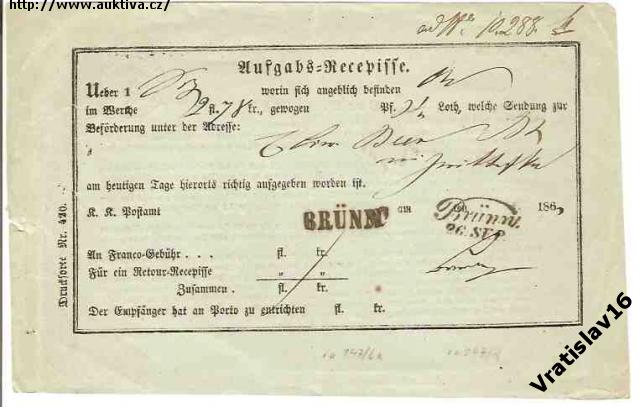 http://www.auktiva.cz/
ad No 10.288.
Aufgabs=Recepisse.
Ueber 1 worin sich angeblich befinden
im Werthe 2 fl. 78 kr., gewogen Pf. Loth, welche Sendung zur
Beförderung unter der Adresse:
am heutigen Tage hierorts richtig aufgegeben worden ist.
K. K. Postamt BRÜNN am Brünn. 186
26. SEP.
An Franco=Gebühr . . . fl. kr.
Für ein Retour=Recepisse " "
Zusammen . fl. kr.
Der Empfänger hat an Porto zu entrichten fl. kr.
Drucksorte Nr. 420.
Vratislav16